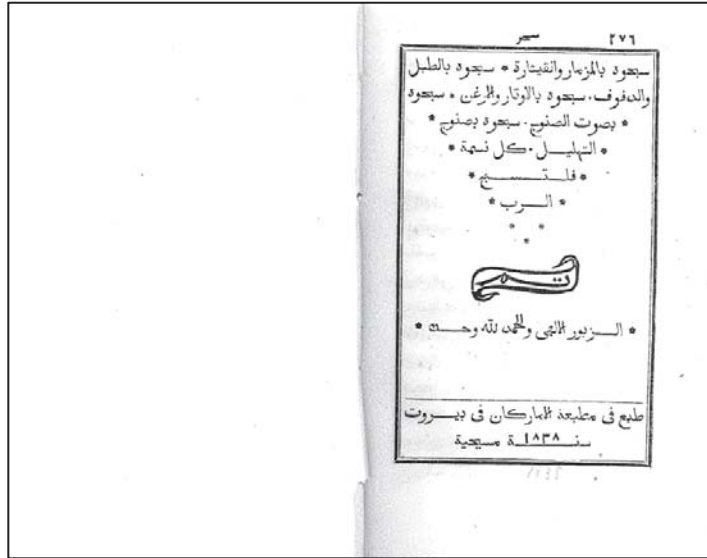 ٢٧٦ سحر
سبحوه بالمزمار والقيثارة * سبحوه بالطبل
والدفوف. سبحوه بالاوتار والارغن * سبحوه
* بصوت الصنوج. سبحوه بصنوج *
* التهليـــل. كل نسمة *
* فلـتـــسبح *
* الـــرب *
تم
* الـــزبور الالهى والحمد لله وحـــده *
طبع فى مطبعة الماركان فى بيـــروت
سنـــ١٨٣٨ـــة مسيحية